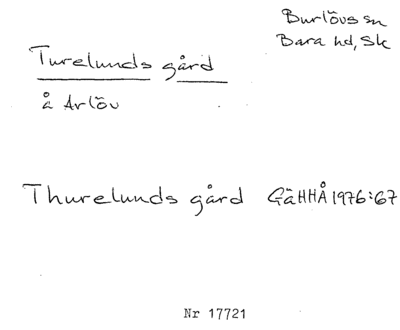 Burlövs sn
Bara hd, Sk
Turelunds gård
å Arlöv
Thurelunds gård GäHHÅ 1976:67
Nr 17721